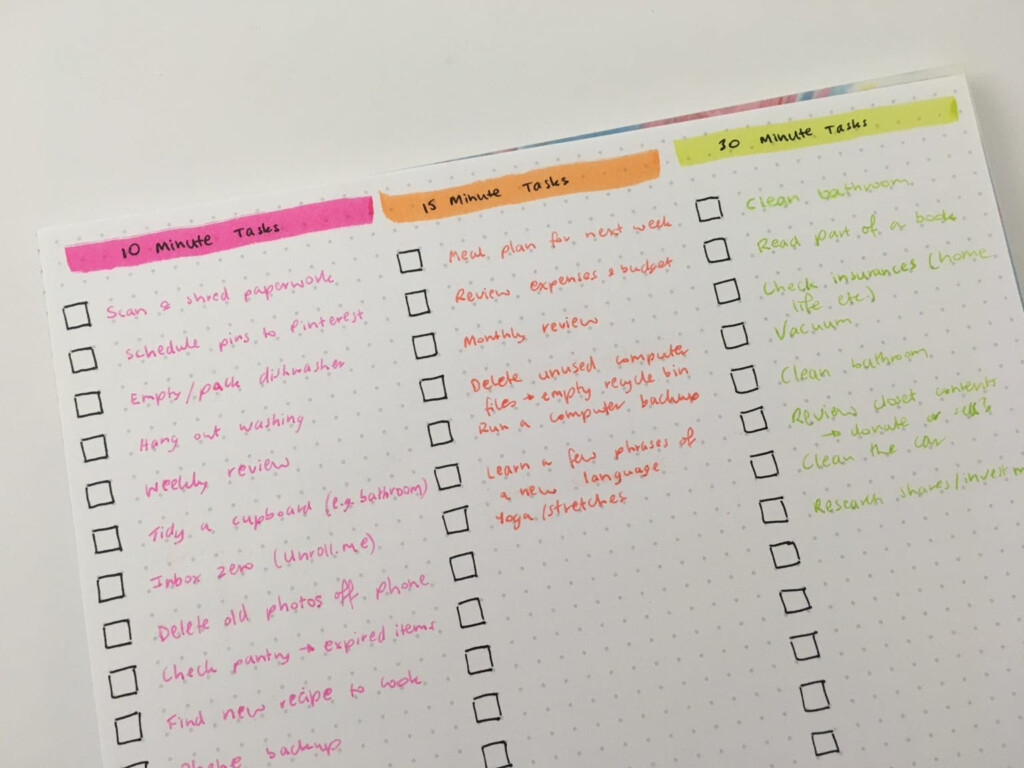 10 Minute Tasks
Scan & shred paperwork
Schedule pins to Pinterest
Empty/pack dishwasher
Hang out washing
Weekly review
Tidy a cupboard (e.g. bathroom)
Inbox zero (Unroll.me)
Delete old photos off phone
Check pantry → expired items
Find new recipe to cook
Phone backup
15 Minute Tasks
Meal plan for next week
Review expenses & budget
Monthly review
Delete unused computer
files → empty recycle bin
Run a computer backup
Learn a few phrases of
a new language
Yoga/stretches
30 Minute Tasks
Clean bathroom
Read part of a book
Check insurances (home
life etc)
Vacuum
Clean bathroom
Review closet contents
→ donate or sell?
Clean the car
Research shares/